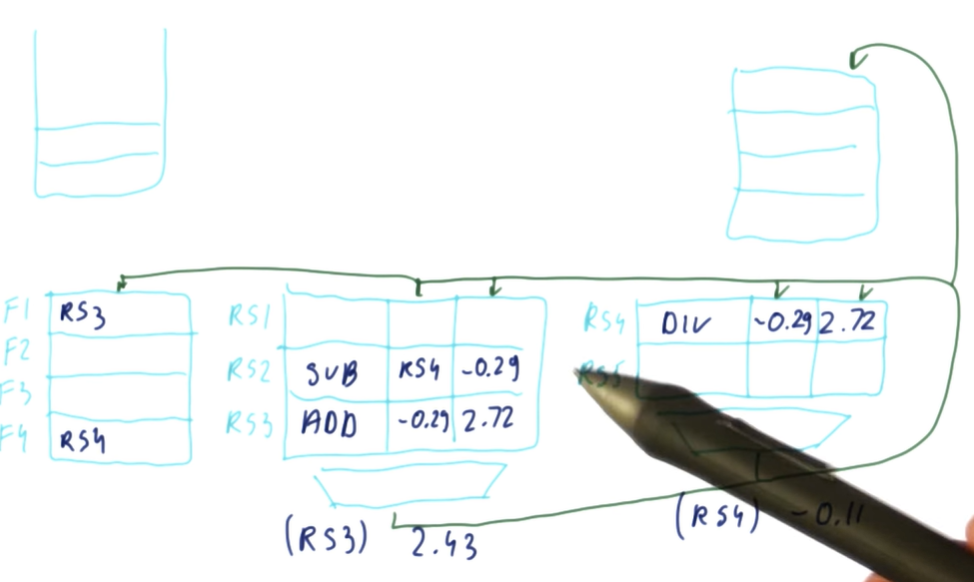 F1 RS3
F2
F3
F4 RS4
RS1
RS2 SUB RS4 -0.29
RS3 ADD -0.29 2.72
RS4 DIV -0.29 2.72
RS5
(RS3) 2.43
(RS4) -0.11